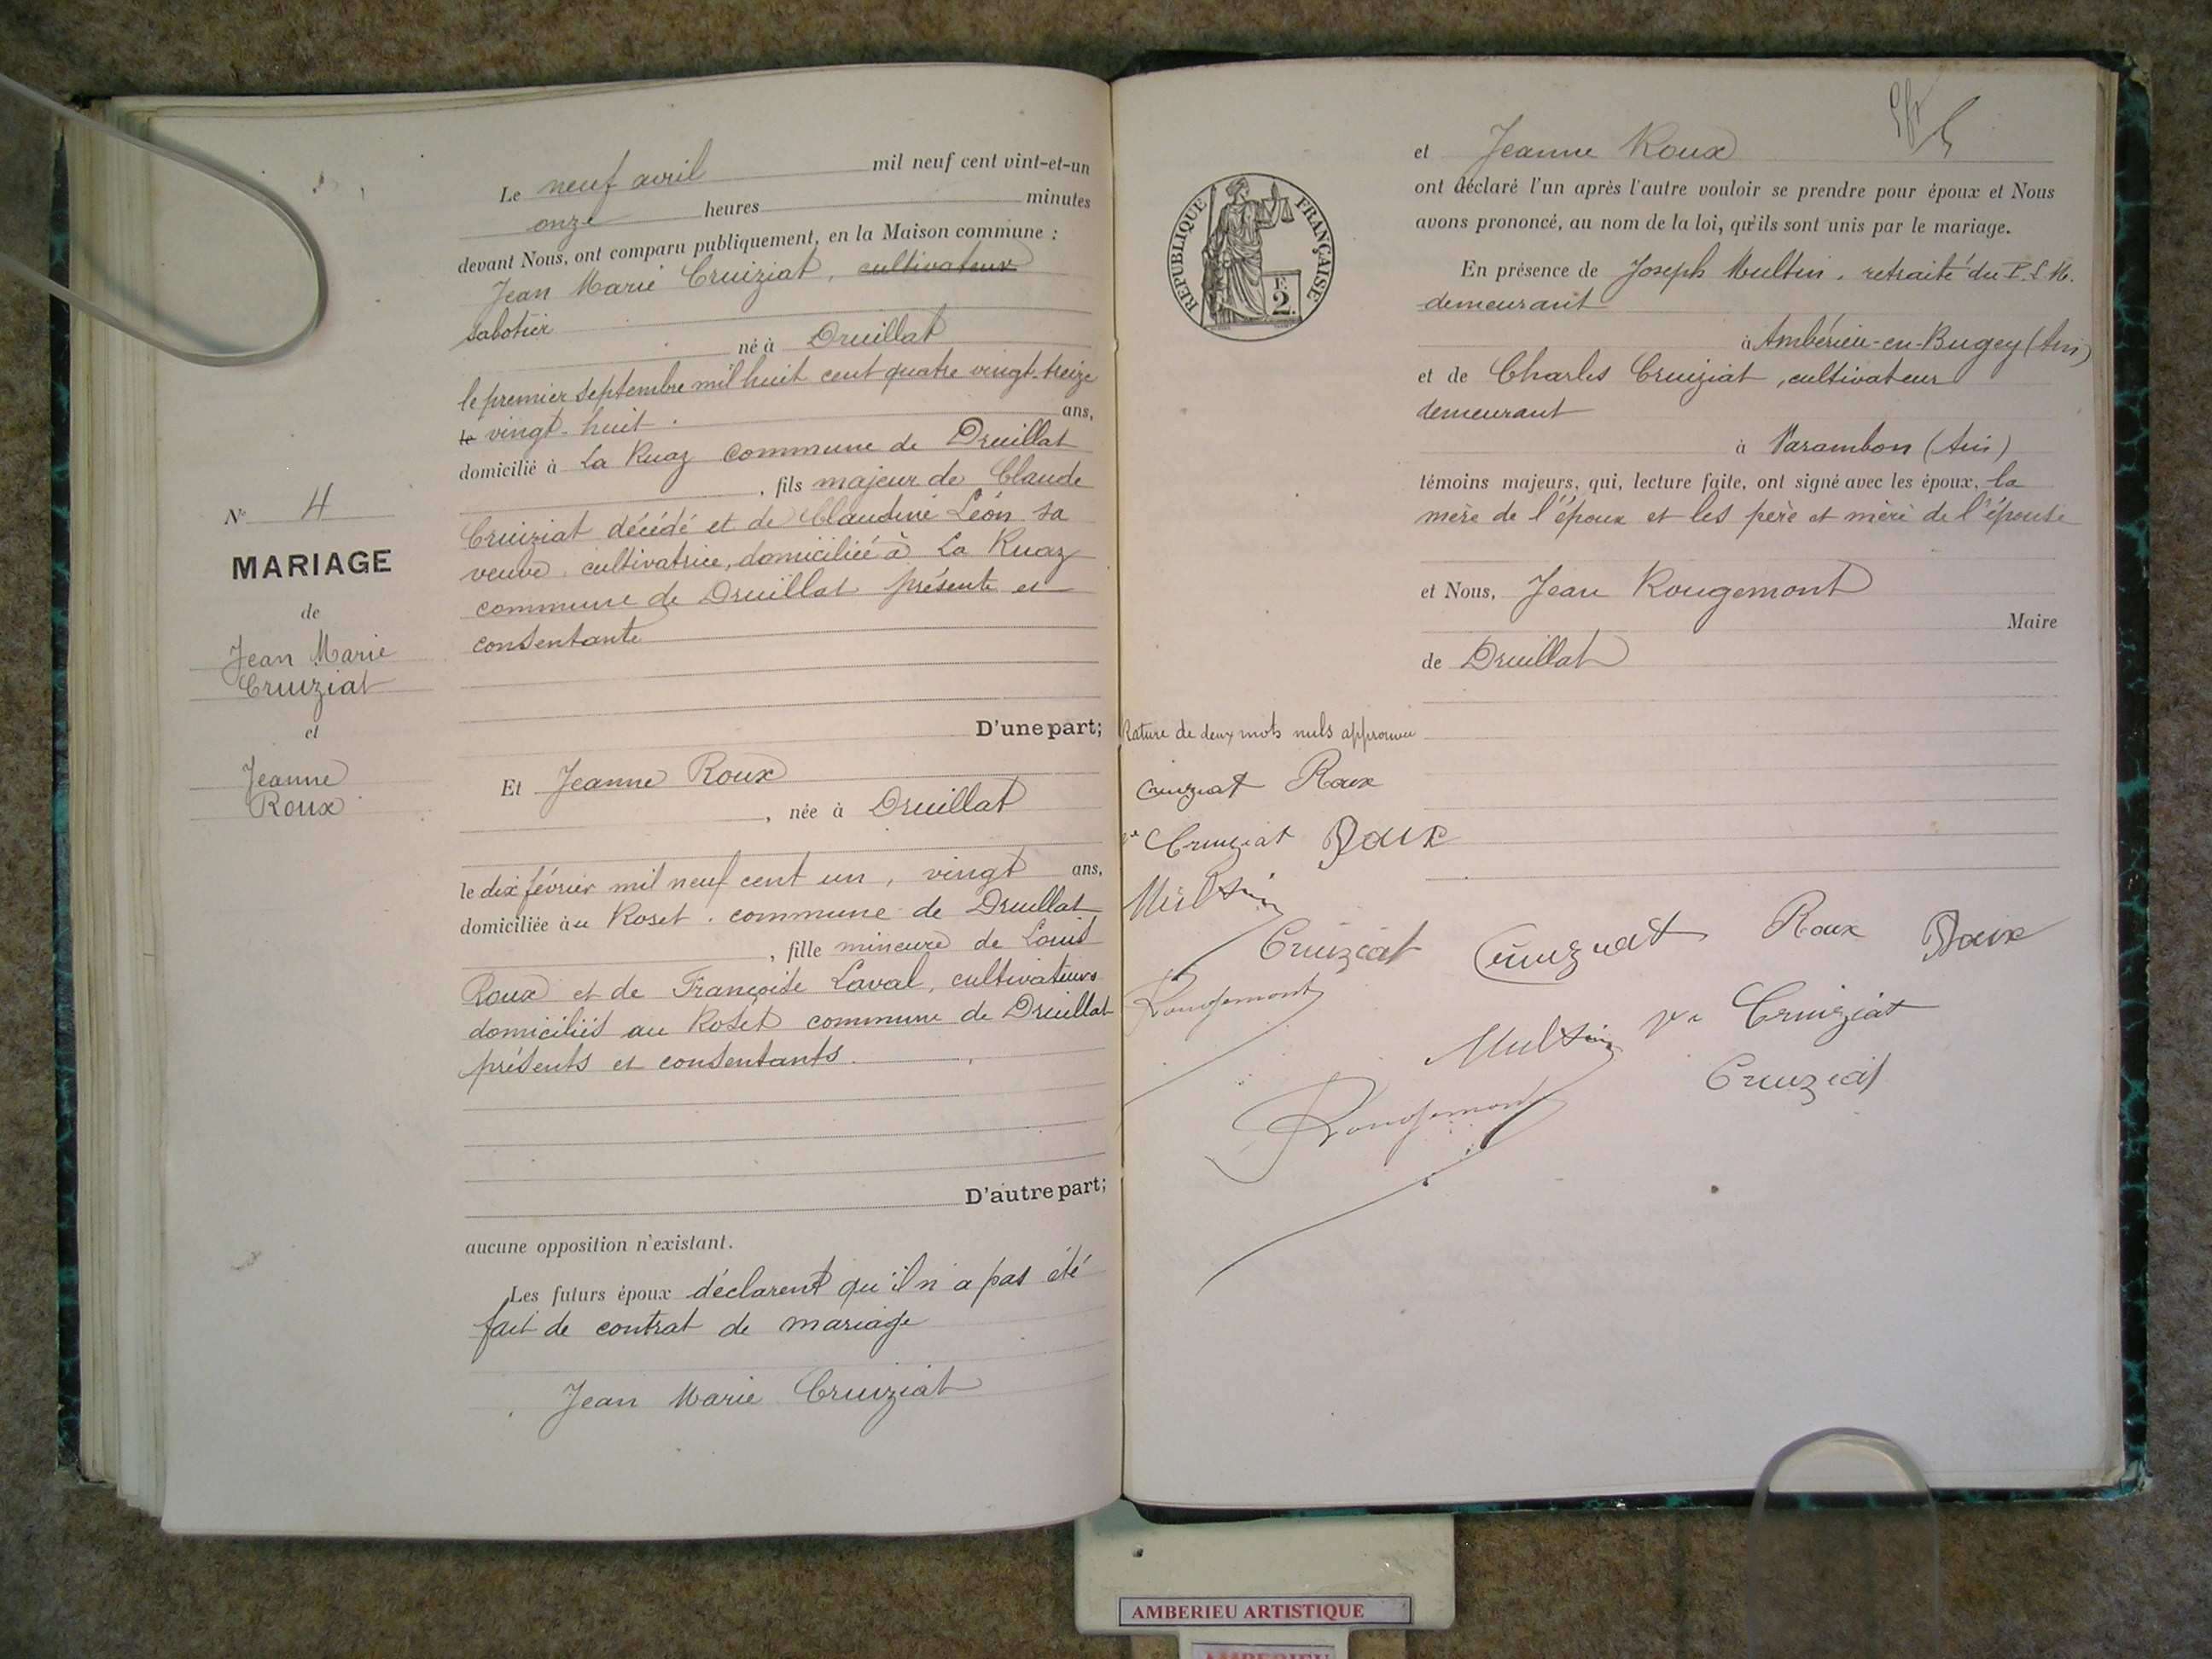 Le neuf avril mil neuf cent vint-et-un
onze heures minutes
devant Nous, ont comparu publiquement, en la Maison commune :
Jean Marie Cruiziat, cultivateur
sabotier né à Druillat
le premier septembre mil huit cent quatre vingt-treize
le vingt-huit ans,
domicilié à La Ruaz commune de Druillat
, fils majeur de Claude
Cruiziat décédé et de Claudine Léon sa
veuve, cultivatrice, domiciliée à La Ruaz
commune de Druillat présente et
consentante
D'une part;
N° 4
MARIAGE
de
Jean Marie
Cruiziat
et
Jeanne
Roux
Et Jeanne Roux
, née à Druillat
le dix février mil neuf cent un, vingt ans,
domiciliée au Roset. commune de Druillat
, fille mineure de Louis
Roux et de Françoise Laval, cultivateurs
domiciliés au Roset commune de Druillat
présents et consentants.
D'autre part;
aucune opposition n'existant.
Les futurs époux déclarent qu'il n'a pas été
fait de contrat de mariage
Jean Marie Cruiziat
et Jeanne Roux
ont déclaré l'un après l'autre vouloir se prendre pour époux et Nous
avons prononcé, au nom de la loi, qu'ils sont unis par le mariage.
RÉPUBLIQUE FRANÇAISE
F.
2.
En présence de Joseph Multin, retraité du P.L.M.
demeurant
à Ambérieu-en-Bugey (Ain)
et de Charles Cruiziat, cultivateur
demeurant
à Varambon (Ain)
témoins majeurs, qui, lecture faite, ont signé avec les époux, la
mère de l'époux et les père et mère de l'épouse
et Nous, Jean Rougemont
Maire
de Druillat
Rature de deux mots nuls approuvée
Cruiziat Roux
Ve Cruiziat Roux
Multin
Cruiziat Cruiziat Roux Roux
Rougemont
Multin Ve Cruiziat
Cruiziat
Rougemont
AMBERIEU ARTISTIQUE
AMBERIEU